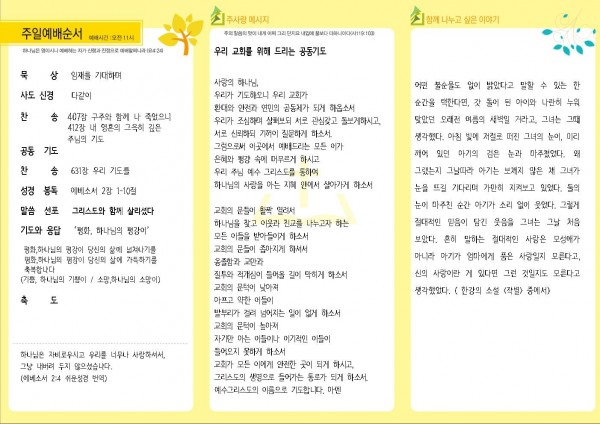 주일예배순서 예배시간 : 오전11시
하나님은 영이시니 예배하는 자가 신령과 진정으로 예배할찌니라 (요4:24)
묵 상 임재를 기대하며
사도 신경 다같이
찬 송 407장 구주와 함께 나 죽었으니
412장 내 영혼의 그윽히 깊은
주님의 기도
공동 기도
찬 송 631장 우리 기도를
성경 봉독 에베소서 2장 1-10절
말씀 선포 그리스도와 함께 살리셨다
기도와 응답 "평화, 하나님의 평강이"
평화,하나님의 평강이 당신의 삶에 넘쳐나기를
평화,하나님의 평강이 당신의 삶에 가득하기를
축복합니다
(기쁨, 하나님의 기쁨이 / 소망,하나님의 소망이)
축 도
하나님은 자비로우시고 우리를 너무나 사랑하셔서,
그냥 내버려 두지 않으셨습니다.
(에베소서 2:4 쉬운성경 번역)
주사랑 메시지
주의 말씀의 맛이 내게 어찌 그리 단지요 내입에 꿀보다 더하니이다(시119:103)
우리 교회를 위해 드리는 공동기도
사랑의 하나님,
우리가 기도해오니 우리 교회가
환대와 안전과 연민의 공동체가 되게 하옵소서
우리가 조심하며 살펴보되 서로 관심갖고 돌보게하시고,
서로 신뢰하되 기꺼이 질문하게 하소서.
그럼으로써 이곳에서 예배드리는 모든 이가
은혜와 평강 속에 머무르게 하시고
우리 주님 예수 그리스도를 통하여
하나님의 사랑을 아는 지혜 안에서 살아가게 하소서
교회의 문들이 활짝 열려서
하나님을 찾고 이웃과 친교를 나누고자 하는
모든 이들을 받아들이게 하소서
교회의 문들이 좁아지게 하셔서
옹졸함과 교만과
질투와 적개심이 들어올 길이 막히게 하소서
교회의 문턱이 낮아져
아프고 약한 이들이
발뿌리가 걸려 넘어지는 일이 없게 하소서
교회의 문턱이 높아져
자기만 아는 이들이나 이기적인 이들이
들어오지 못하게 하소서
교회가 모든 이에게 안전한 곳이 되게 하시고,
그리스도의 생명으로 들어가는 통로가 되게 하소서.
예수그리스도의 이름으로 기도합니다. 아멘
함께 나누고 싶은 이야기
어떤 불순물도 없이 밝았다고 말할 수 있는 한
순간을 택한다면, 갓 돌이 된 아이와 나란히 누워
맞았던 오래전 여름의 새벽일 거라고, 그녀는 그때
생각했다. 아침 빛에 저절로 떠진 그녀의 눈이, 미리
깨어 있던 아기의 검은 눈과 마주쳤었다. 왜
그랬는지 그날따라 아기는 보채지 않은 채 그녀가
눈을 뜨길 기다리며 가만히 지켜보고 있었다. 둘의
눈이 마주친 순간 아기가 소리 없이 웃었다. 그렇게
절대적인 믿음이 담긴 웃음을 그녀는 그날 처음
보았다. 흔히 말하는 절대적인 사랑은 모성애가
아니라 아기가 엄마에게 품은 사랑일지 모른다고,
신의 사랑이란 게 있다면 그런 것일지도 모른다고
생각했었다. < 한강의 소설 《작별》 중에서>